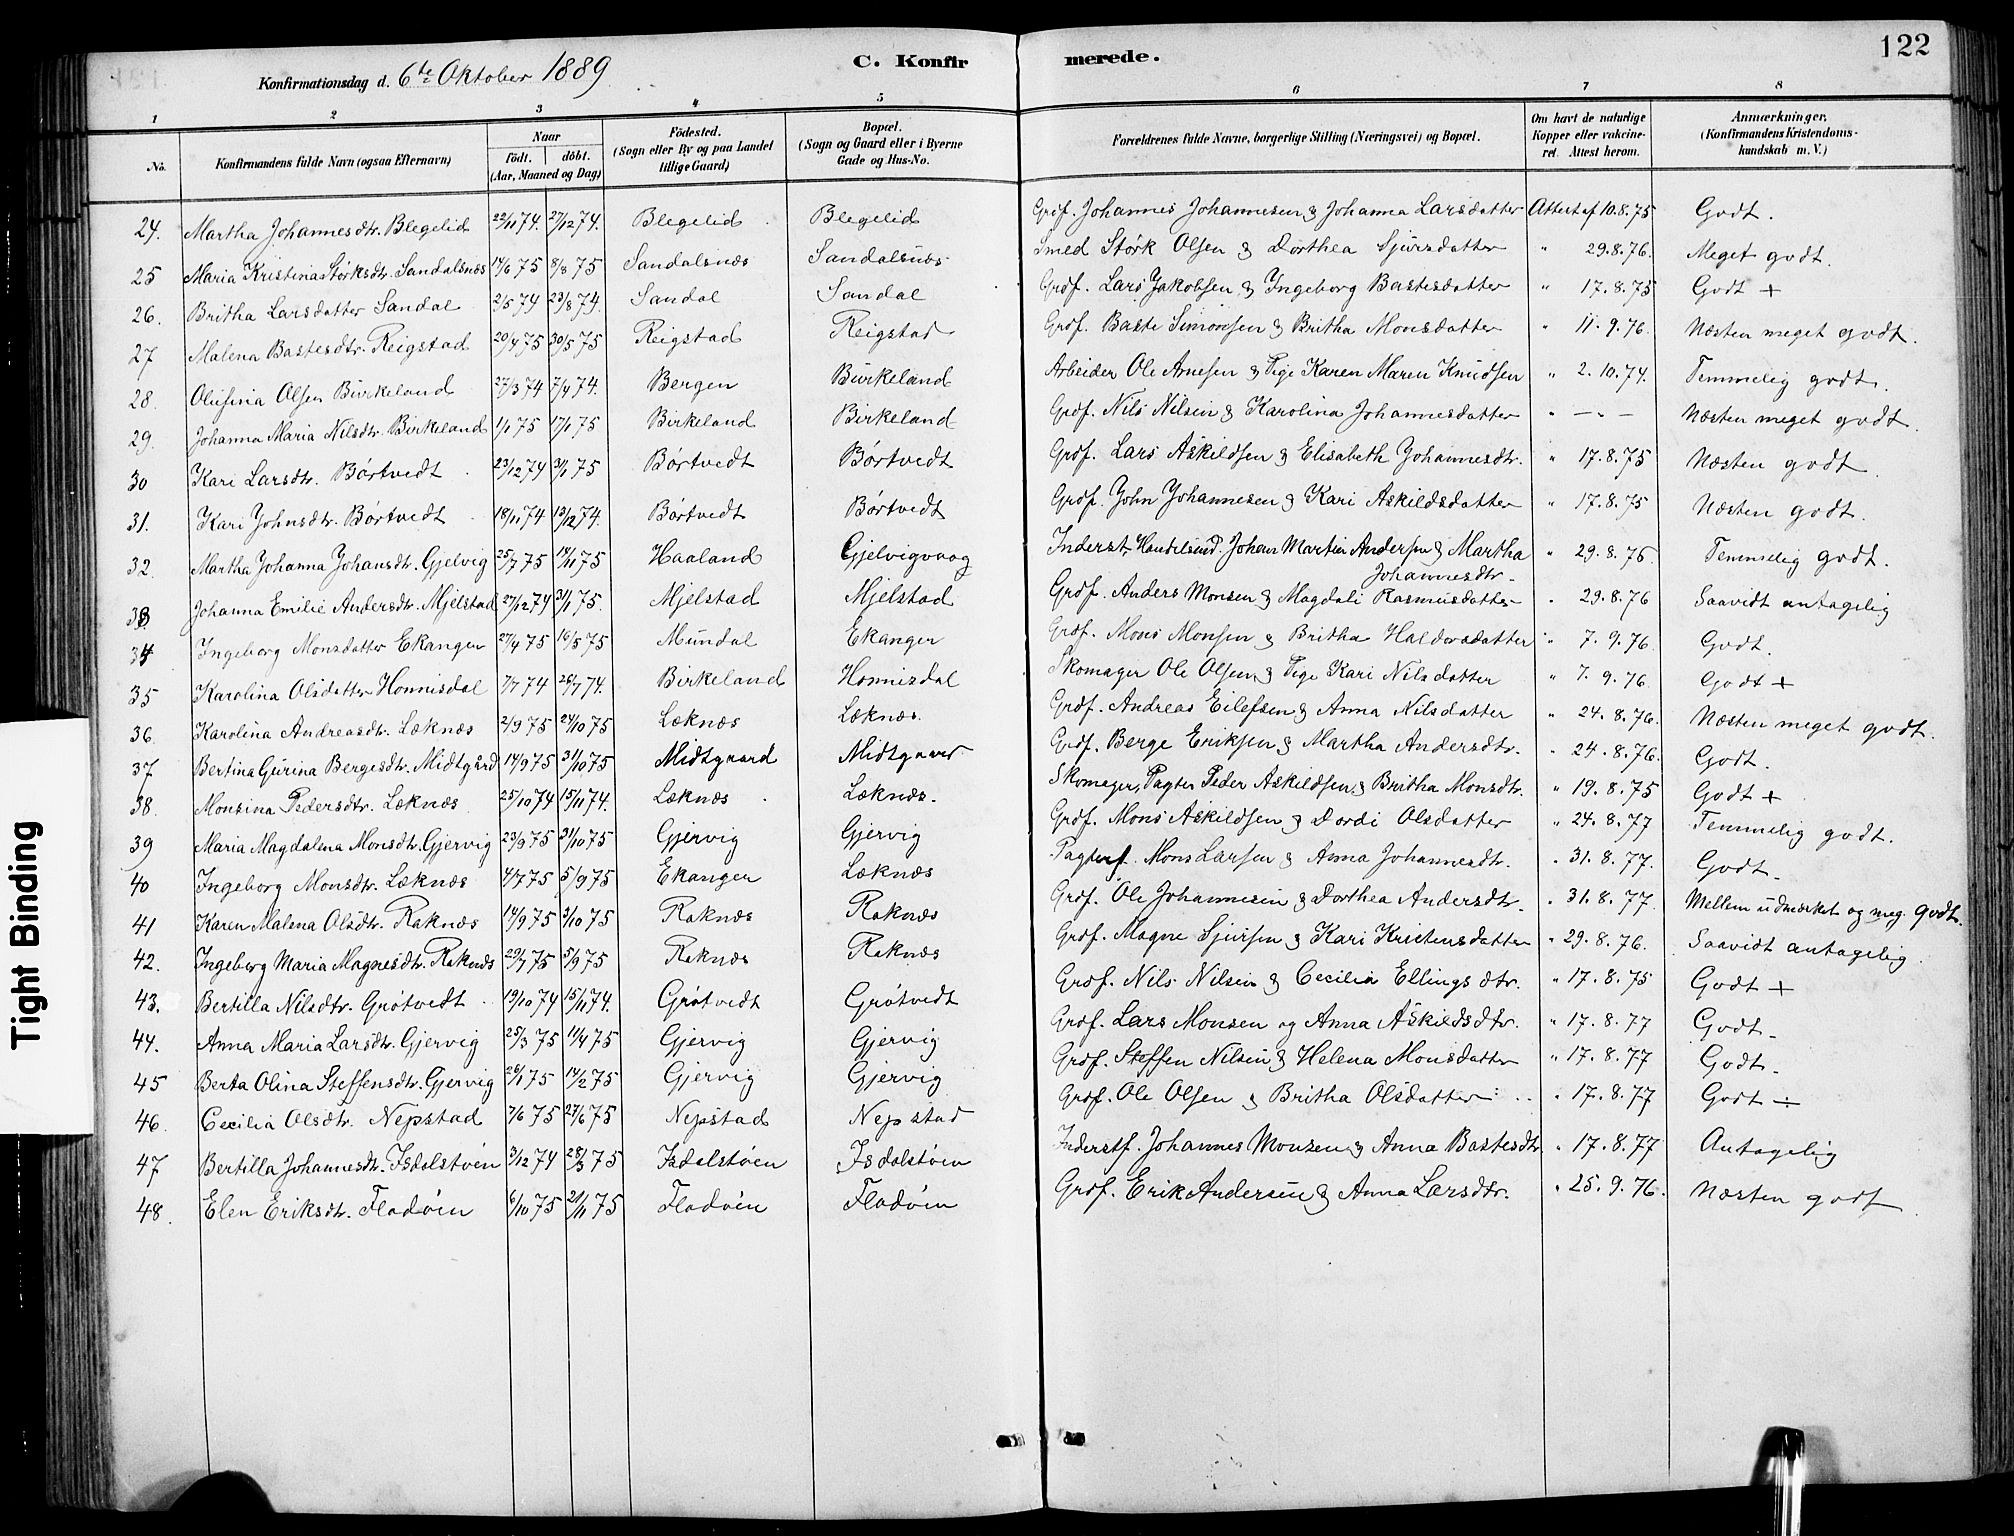 122
Konfirmationsdag d. 6te Oktober 1889
C. Konfirmerede.
1 2 3 4 5 6 7 8
No. Konfirmandens fulde Navn (ogsaa Efternavn) Naar födt. döbt. (Aar, Maaned og Dag) Födested. (Sogn eller By og paa Landet tillige Gaard) Bopæl. (Sogn og Gaard eller i Byerne Gade og Hus-No. Forældrenes fulde Navne, borgerlige Stilling (Næringsvei) og Bopæl. Om havt de naturlige Kopper eller vakcineret. Attest herom. Anmærkninger. (Konfirmandens Kristendomskundskab m. V.)
24. Martha Johannesdtr. Blegelid 22/11 74. 27/12 74. Blegelid Blegelid Grdf. Johannes Johannesen & Johanna Larsdatter Attest af 10.8.75 Godt.
25 Maria Kristina Størksdtr. Sandalsnæs 14/6 75 8/8 75 Sandalsnæs Sandalsnæs Smed Størk Olsen & Dorthea Sjursdatter " 29.8.76. Meget godt.
26. Britha Larsdatter Sandal 2/5 74 23/8 74. Sandal Sandal Grdf. Lars Jakobsen & Ingeborg Bastesdatter " 17.8.75 Godt +
27 Malena Bastesdtr. Reigstad 20/4 75 30/5 75 Reigstad Reigstad Grdf. Baste Simonsen & Britha Monsdatter " 11.9.76. Næsten meget godt.
28. Olufina Olsen Birkeland 27/3 74 7/4 74. Bergen Birkeland Arbeider Ole Arnesen & Pige Karen Maren Knudsen " 2.10.74. Temmelig godt.
29. Johanna Maria Nilsdtr. Birkeland 1/1 75 17/1 75 Birkeland Birkeland Grdf. Nils Nilsen & Karolina Johannesdatter " — " — Næsten meget godt.
30 Kari Larsdtr. Børtvedt 23/12 74 3/1 75 Børtvedt Børtvedt Grdf. Lars Askildsen & Elisabeth Johannesdtr. " 17.8.75 Næsten godt.
31. Kari Johnsdtr. Børtvedt 18/11 74 13/12 74. Børtvedt Børtvedt Grdf. John Johannesen & Kari Askildsdatter " 17.8.75 Næsten godt.
32. Martha Johanna Johansdtr. Gjelvig 25/7 75 14/11 75 Haaland Gjelvigvaag Inderst, Handelsmd. Johan Martin Andersen & Martha Johannesdtr. " 29.8.76 Temmelig godt.
33 Johanna Emilie Andersdtr. Mjelstad 27/12 74 31/1 75. Mjelstad Mjelstad Grdf. Anders Monsen & Magdali Rasmusdatter " 29.8.76 Saavidt antagelig
34 Ingeborg Monsdatter Ekanger 27/4 75 16/5 75 Mundal Ekanger Grdf. Mons Monsen & Britha Haldorsdatter " 7.9.76. Godt.
35 Karolina Olsdatter Honnisdal 7/7 74 26/7 74. Birkeland Honnisdal Skomager Ole Olsen & Pige Kari Nilsdatter " 7.9.76 Godt +
36. Karolina Andreasdtr. Læknæs 2/9 75 24/10 75 Læknæs Læknæs. Grdf. Andreas Eilefsen & Anna Nilsdatter " 24.8.76. Næsten meget godt.
37 Bertina Gurina Bergesdtr. Midtgård 14/9 75 31/10 75 Midtgaard Midtgaard Grdf. Berge Eriksen & Martha Andersdtr. " 24.8.76. Godt.
38. Monsina Pedersdtr. Læknæs 25/10 74 15/11 74. Læknæs Læknæs. Skomager, Pagter Peder Askildsen & Britha Monsdtr. " 19.8.75 Godt +
39 Maria Magdalena Monsdtr. Gjervig 23/9 75 31/10 75 Gjervig Gjervig Grdf. Mons Askildsen & Dordi Olsdatter " 24.8.77 Temmelig godt.
40 Ingeborg Monsdtr. Læknæs 4/7 75 5/9 75 Ekanger Læknæs Pagterf. Mons Larsen & Anna Johannesdtr. " 31.8.77. Godt.
41 Karen Malena Olsdtr. Raknæs 14/9 75 3/10 75 Raknæs Raknæs Grdf. Ole Johannesen & Dorthea Andersdtr. " 31.8.77. Mellem udmærket og meg. godt.
42. Ingeborg Maria Magnesdtr. Raknæs 29/7 75 5/9 75 Raknæs Raknæs Grdf. Magne Sjursen & Kari Kristensdatter " 29.8.76. Saavidt antagelig.
43. Bertilla Nilsdtr. Grøtvedt 19/10 74 15/11 74. Grøtvedt Grøtvedt Grdf. Nils Nilsen & Cecilia Ellingsdtr. " 17.8.75 Godt +
44. Anna Maria Larsdtr. Gjervig 25/3 75 11/4 75 Gjervig Gjervig Grdf. Lars Monsen og Anna Askildsdtr. " 17.8.77 Godt.
45 Berta Olina Steffensdtr. Gjervig 26/1 75 14/2 75 Gjervig Gjervig Grdf. Steffen Nilsen & Helena Monsdatter " 17.8.77 Godt.
46. Cecilia Olsdtr. Nepstad 7/6 75 27/6 75 Nepstad Nepstad Grdf. Ole Olsen & Britha Olsdatter " 17.8.77 Godt ÷
47 Bertilla Johannesdtr. Isdalstøen 3/12 74 28/3 75 Isdalstøen Isdalstøen Inderstf. Johannes Monsen & Anna Bastesdtr " 17.8.77 Antagelig
48. Elen Eriksdtr. Fladøen 6/10 75 21/11 75 Fladøen Fladøen Grdf. Erik Andersen & Anna Larsdtr. " 25.9.76. Næsten godt
Tight Binding